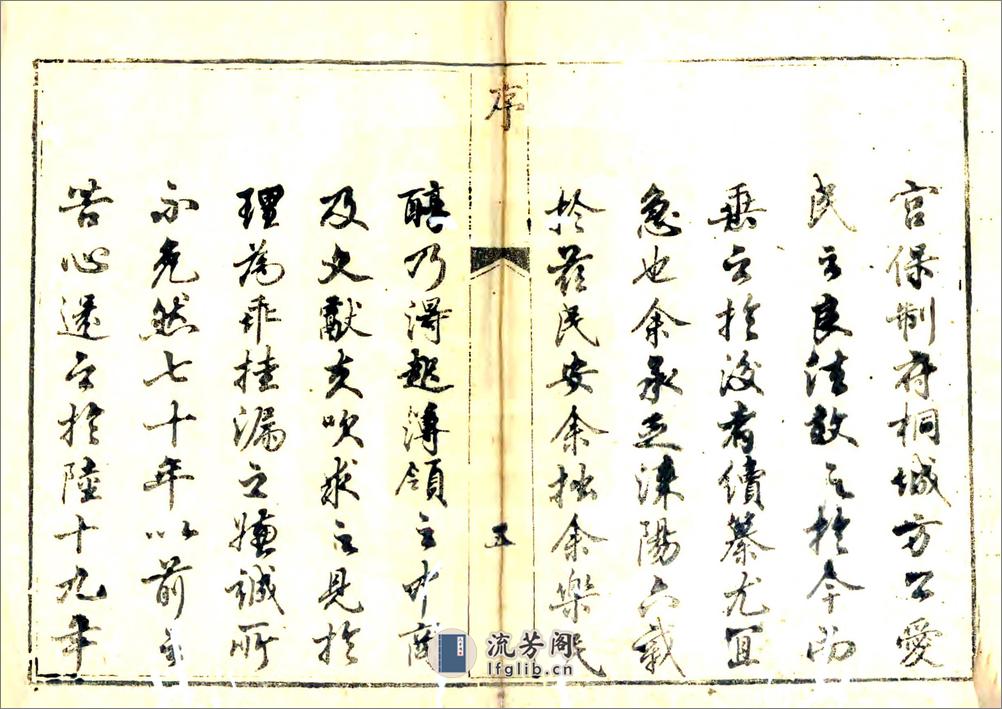 宮保制府桐城方公愛
民之良法效之於今而
垂之於後者續纂尤宜
急也余承乏涞陽六載
於茲民安余拙余樂民
序
五
醇乃得起簿領之中商
及文獻夫吹求之見於
理為乖挂漏之嫌誠所
不免然七十年以前之
苦心還之於陸十九年
流芳阁
lfglib.cn